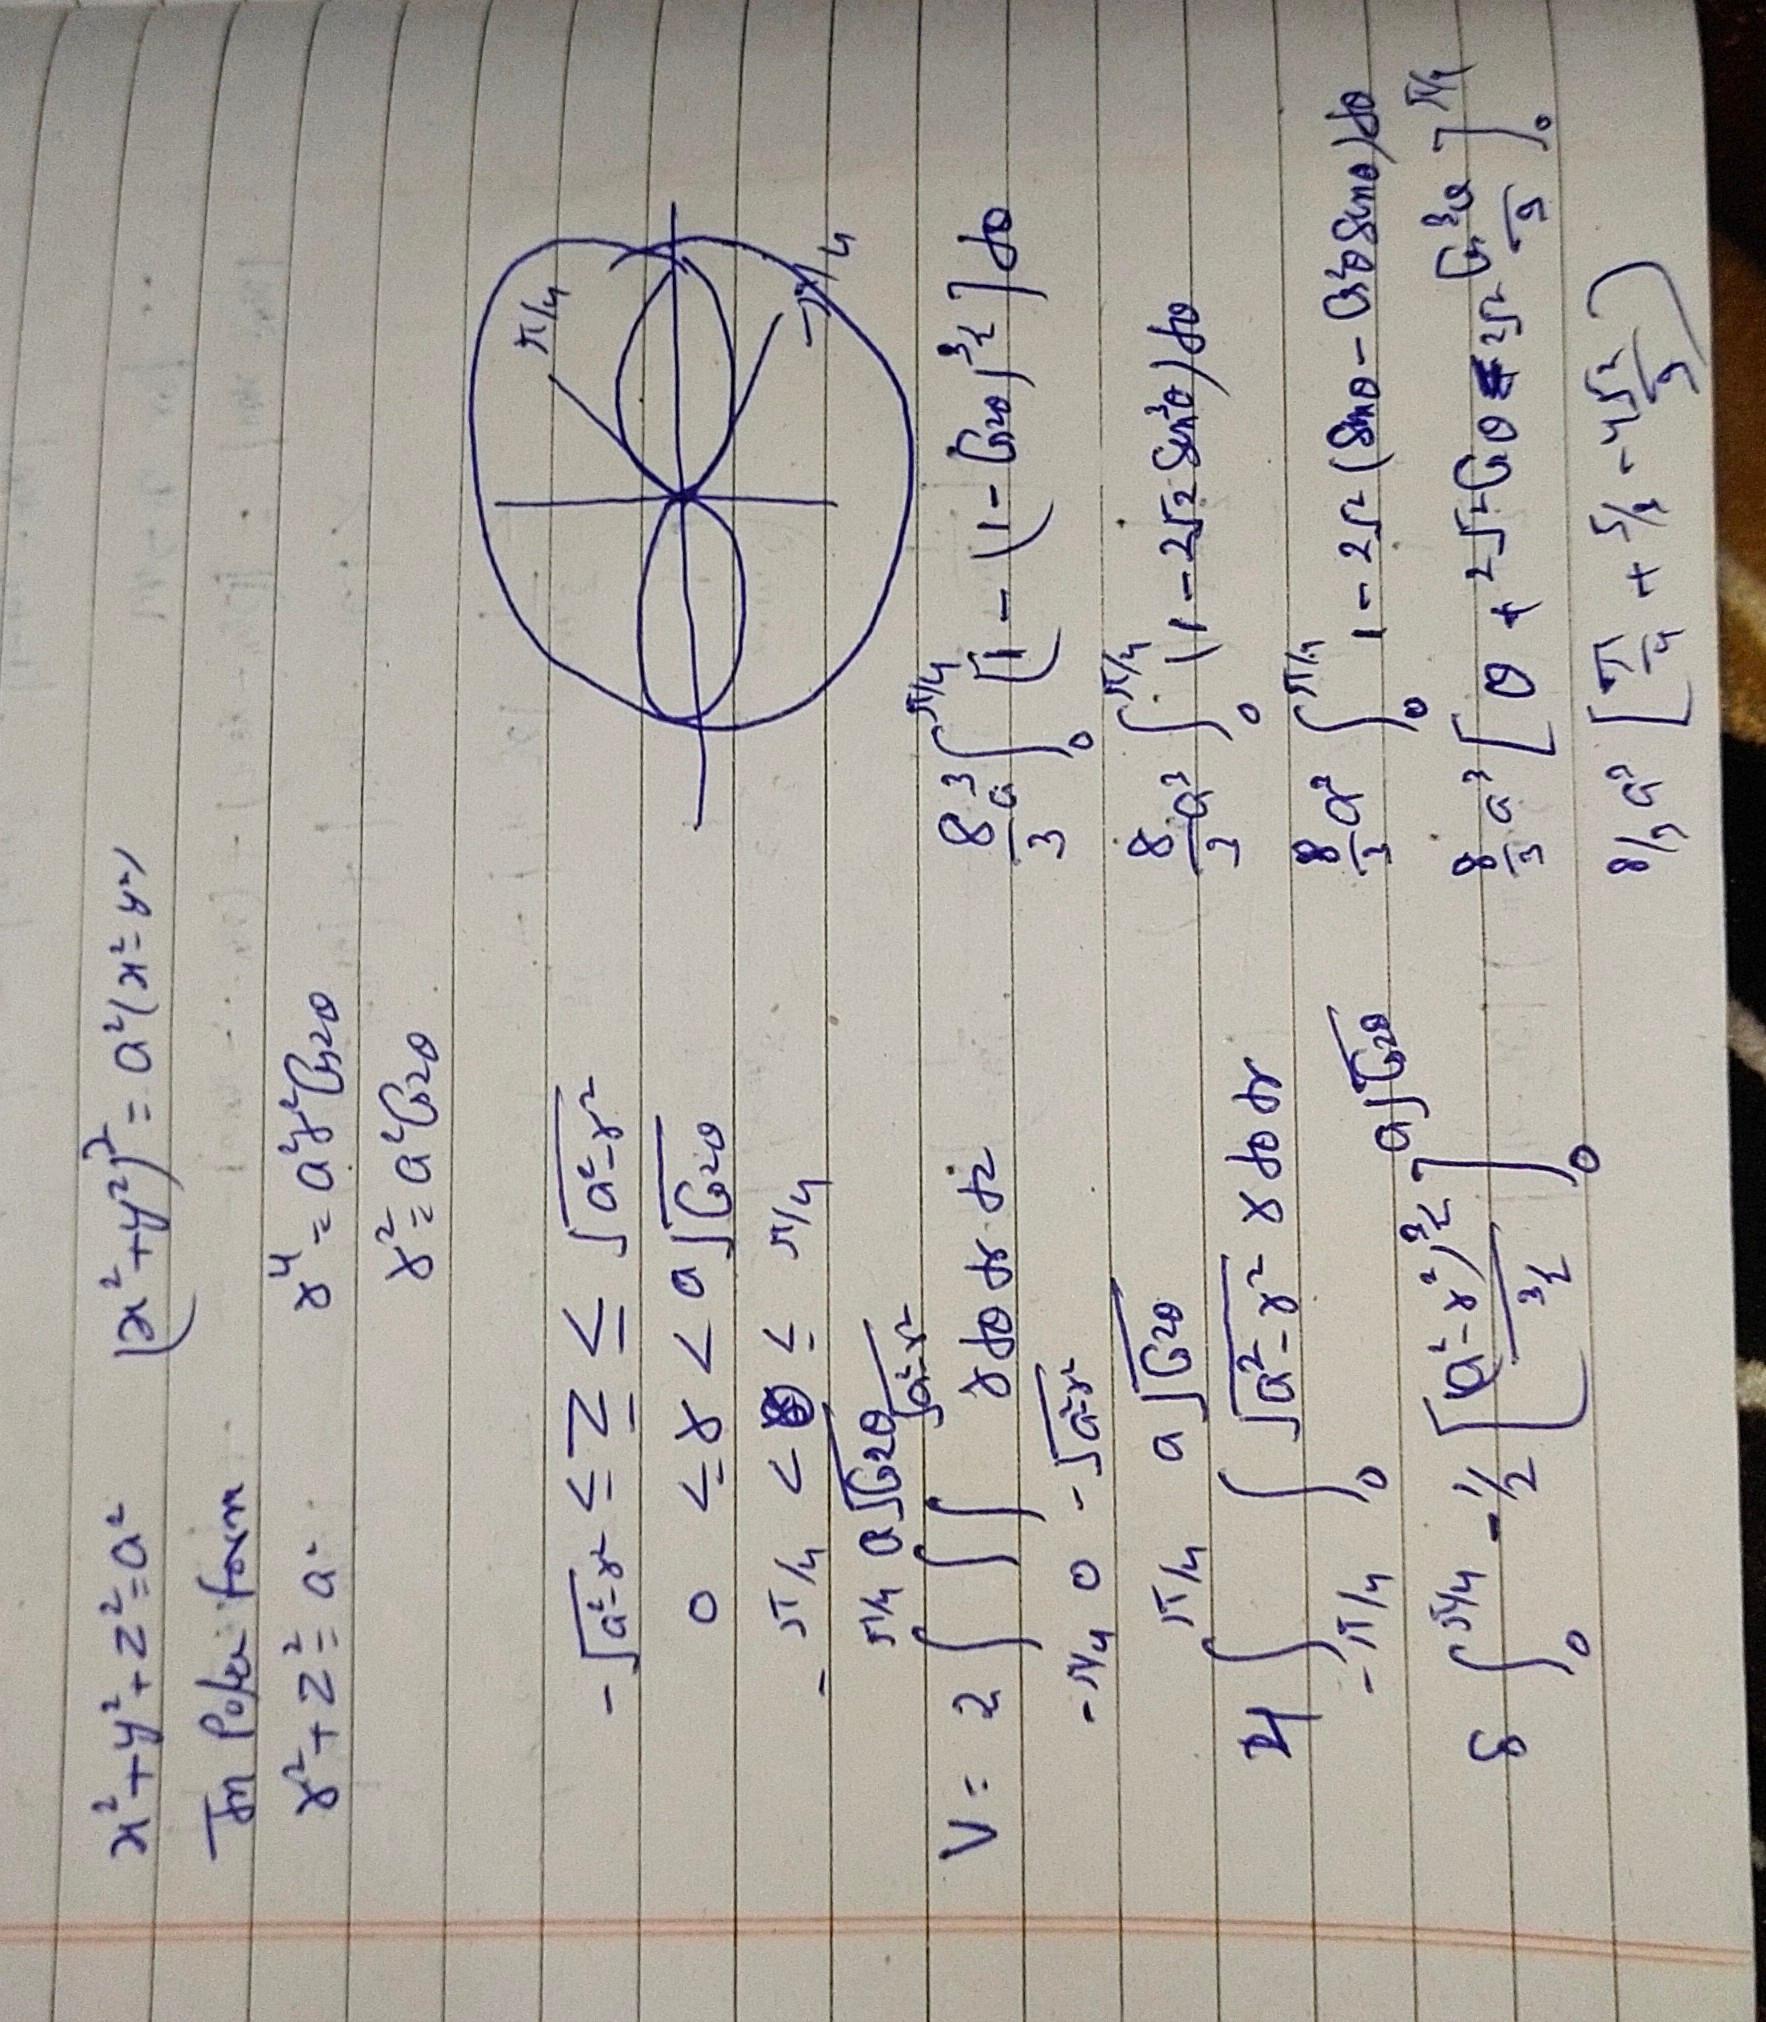 x² + y² + z² = a²   (x² + y²)² = a²(x² - y²)
In Polar form
r² + z² = a²   r⁴ = a²r² Cos2θ
r² = a² Cos2θ
-√(a²-r²) ≤ z ≤ √(a²-r²)
0 ≤ r < a√(Cos2θ)
-π/4 < θ ≤ π/4
π/4
-π/4
V = 2 ∫_{-π/4}^{π/4} ∫_0^{a√(Cos2θ)} ∫_{-√(a²-r²)}^{√(a²-r²)} r dθ dr dz
4 ∫_{-π/4}^{π/4} ∫_0^{a√(Cos2θ)} √(a²-r²) r dθ dr
8 ∫_0^{π/4} -1/2 [(a²-r²)^{3/2} / (3/2)]_0^{a√(Cos2θ)}
8/3 a³ ∫_0^{π/4} [1 - (1 - Cos2θ)^{3/2}] dθ
8/3 a³ ∫_0^{π/4} (1 - 2√2 Sin³θ) dθ
8/3 a³ ∫_0^{π/4} 1 - 2√2 (Sinθ - Cos²θ Sinθ) dθ
8/3 a³ [θ + 2√2 Cosθ - 2√2 Cos³θ/3]_0^{π/4}
8/3 a³ [π/4 + 5/3 - 4√2/3]